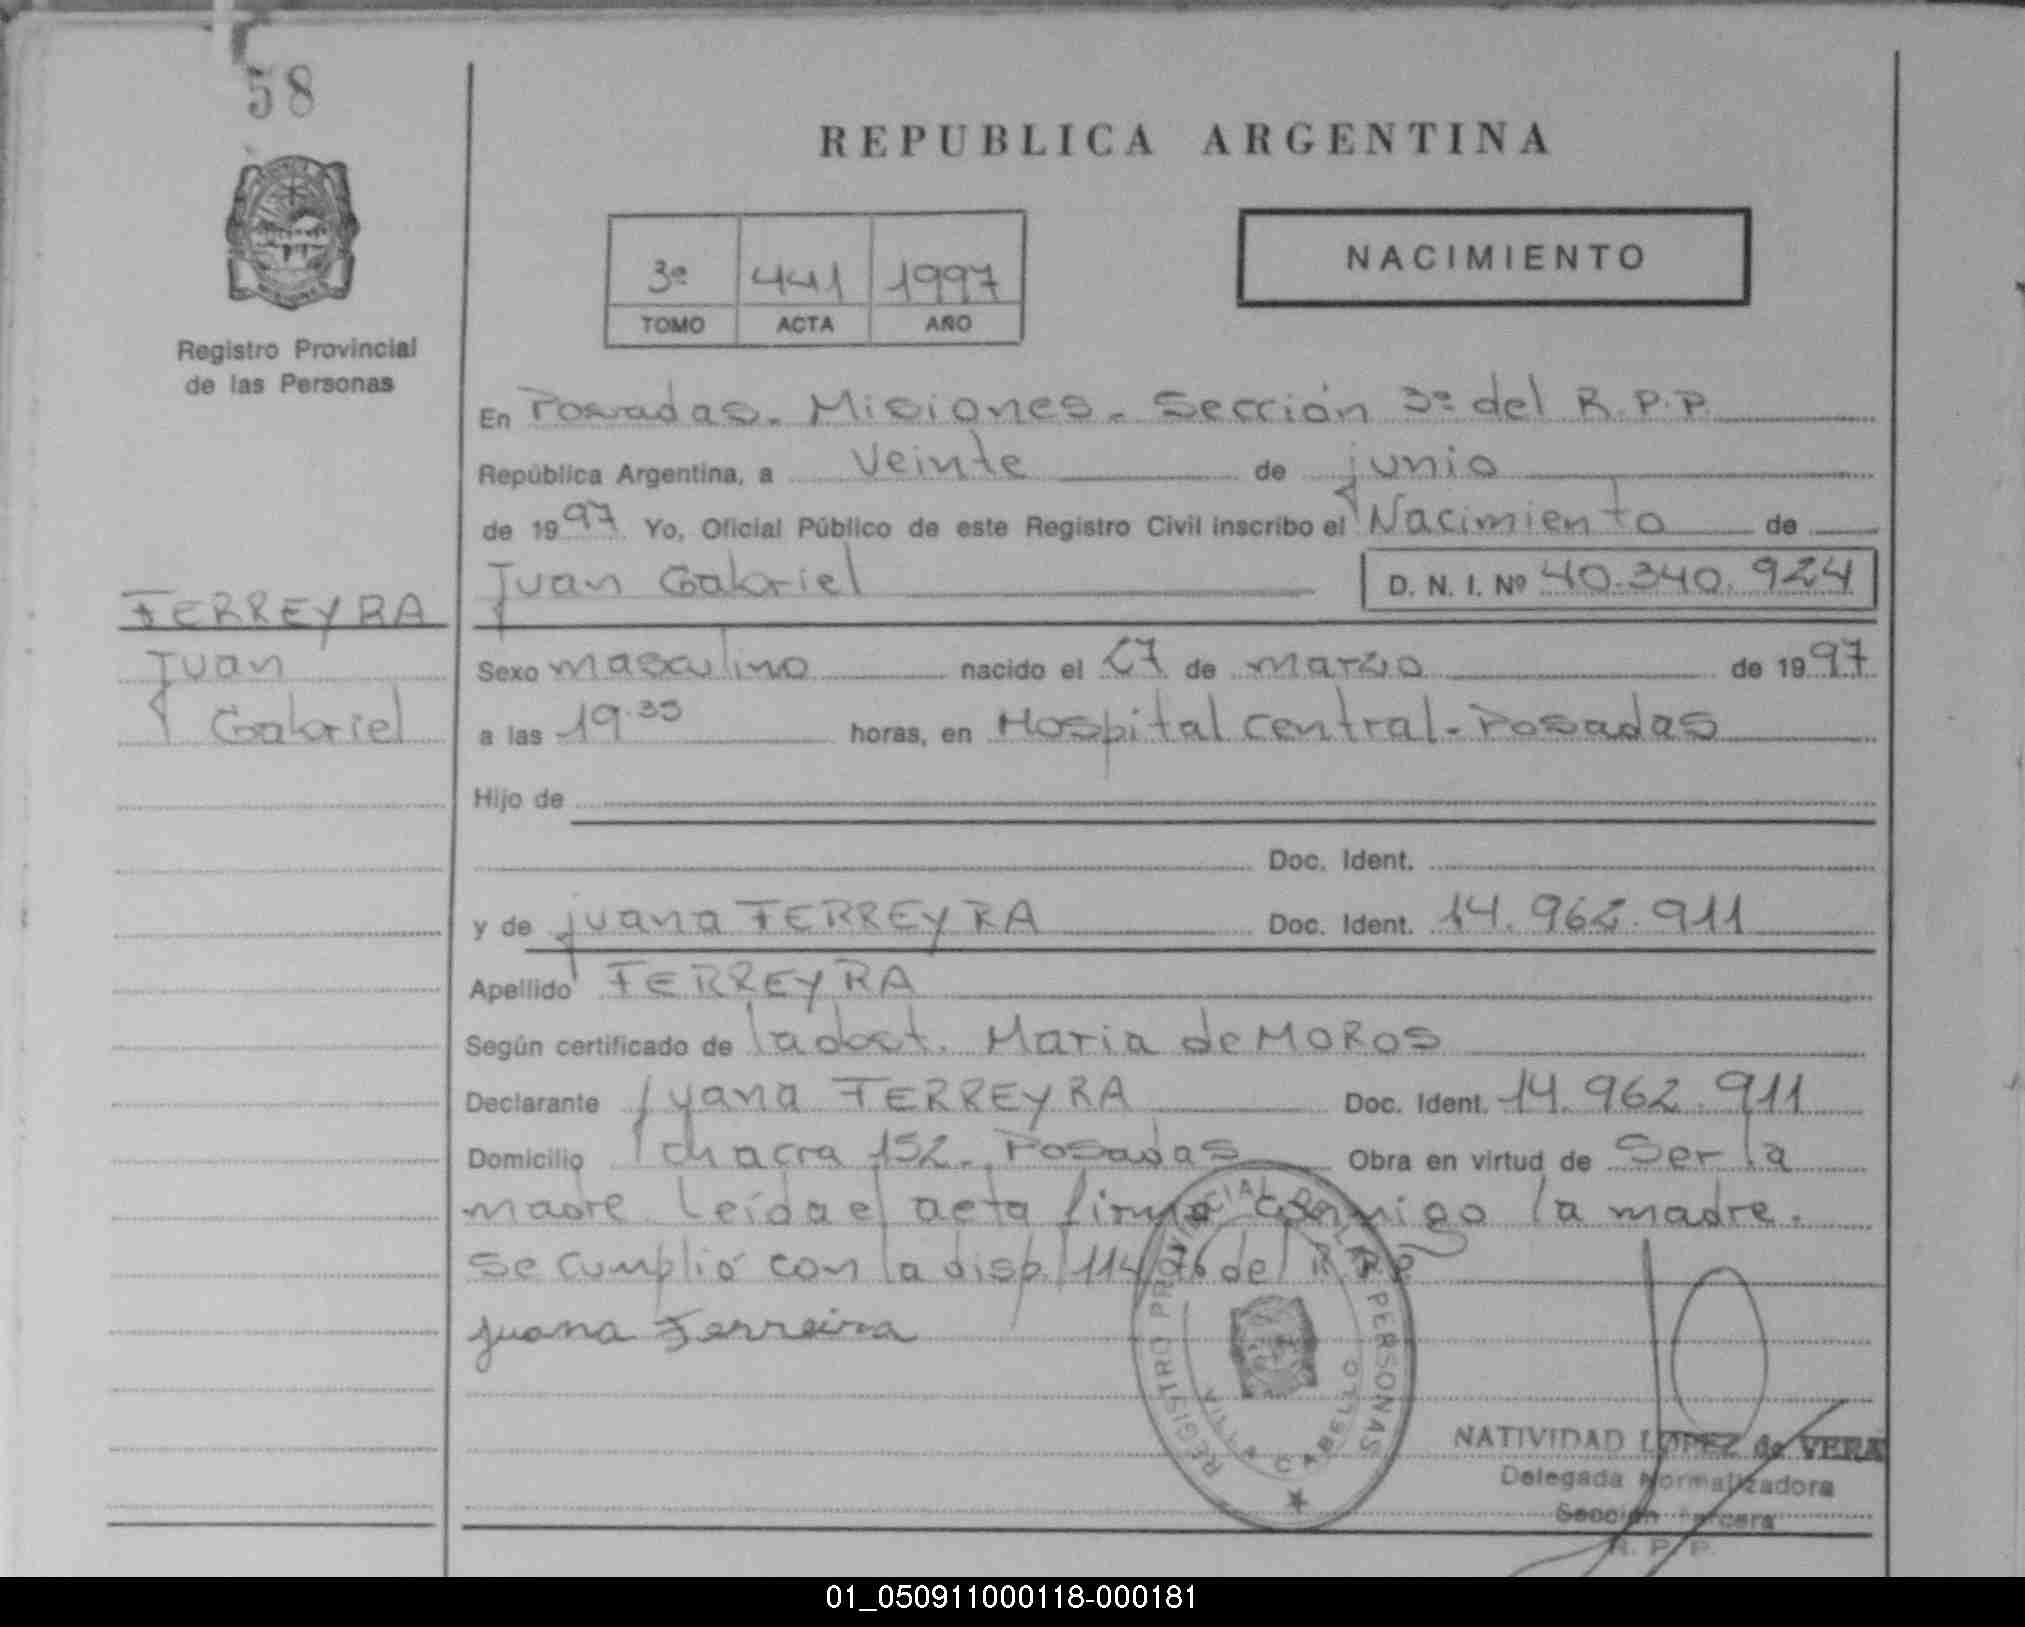 58
REPUBLICA ARGENTINA
3ª 441 1997
TOMO ACTA AÑO
NACIMIENTO
Registro Provincial
de las Personas
En Posadas. Misiones. Sección 3ª del R.P.P.
República Argentina, a veinte de junio
de 1997 Yo, Oficial Público de este Registro Civil inscribo el Nacimiento de
Juan Gabriel D. N. I. Nº 40.340.924
FERREYRA
Juan
Gabriel
Sexo masculino nacido el 27 de marzo de 1997
a las 19.35 horas, en Hospital Central - Posadas
Hijo de
Doc. Ident.
y de juana FERREYRA Doc. Ident. 14.962.911
Apellido FERREYRA
Según certificado de la doct. Maria de MOROS
Declarante Juana FERREYRA Doc. Ident. 14.962.911
Domicilio chacra 152. Posadas Obra en virtud de Ser la
madre. Leída el acta firma conmigo la madre.
Se cumplió con la disp. 114/76 del R.P.P.
juana Ferreira
REGISTRO PROVINCIAL DE LAS PERSONAS
VILLA CABELLO
NATIVIDAD LOPEZ de VERA
Delegada Normalizadora
Sección Tercera
R. P. P.
01_050911000118-000181